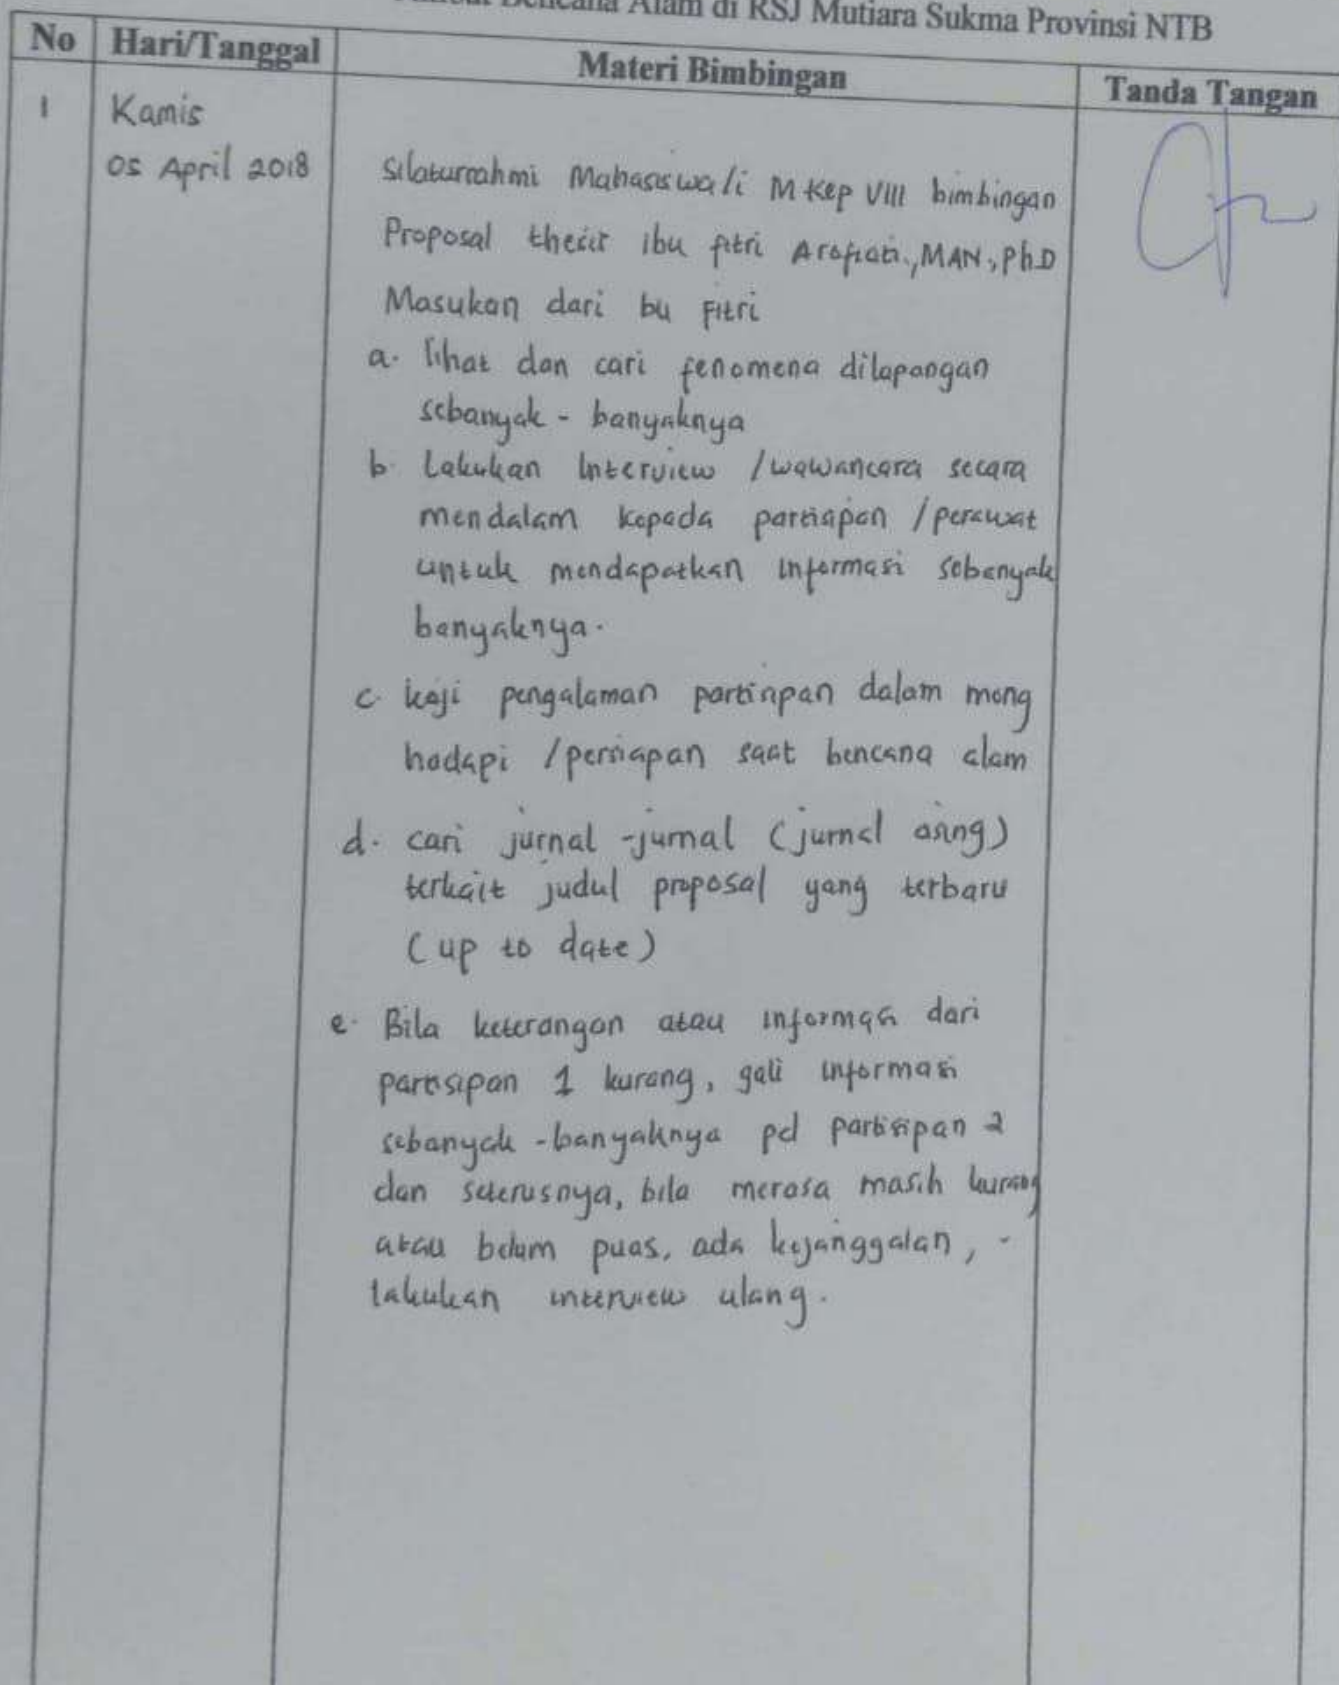 Bencana Alam di RSJ Mutiara Sukma Provinsi NTB
No Hari/Tanggal Materi Bimbingan Tanda Tangan
1 Kamis
05 April 2018
Silaturrahmi Mahasiswa/i MKep VIII bimbingan
Proposal thesis ibu fitri Arofiati., MAN., PhD
Masukan dari bu Fitri
a. lihat dan cari fenomena dilapangan
sebanyak - banyaknya
b. Lakukan Interview /wawancara secara
mendalam kepada partisipan /perawat
untuk mendapatkan informasi sebanyak
banyaknya.
c. kaji pengalaman partisipan dalam meng
hadapi /persiapan saat bencana alam
d. cari jurnal -jurnal (jurnal asing)
terkait judul proposal yang terbaru
(up to date)
e. Bila keterangan atau informasi dari
partisipan 1 kurang, gali informasi
sebanyak -banyaknya pd partisipan 2
dan seterusnya, bila merasa masih kurang
atau belum puas, ada kejanggalan, -
lakukan interview ulang.